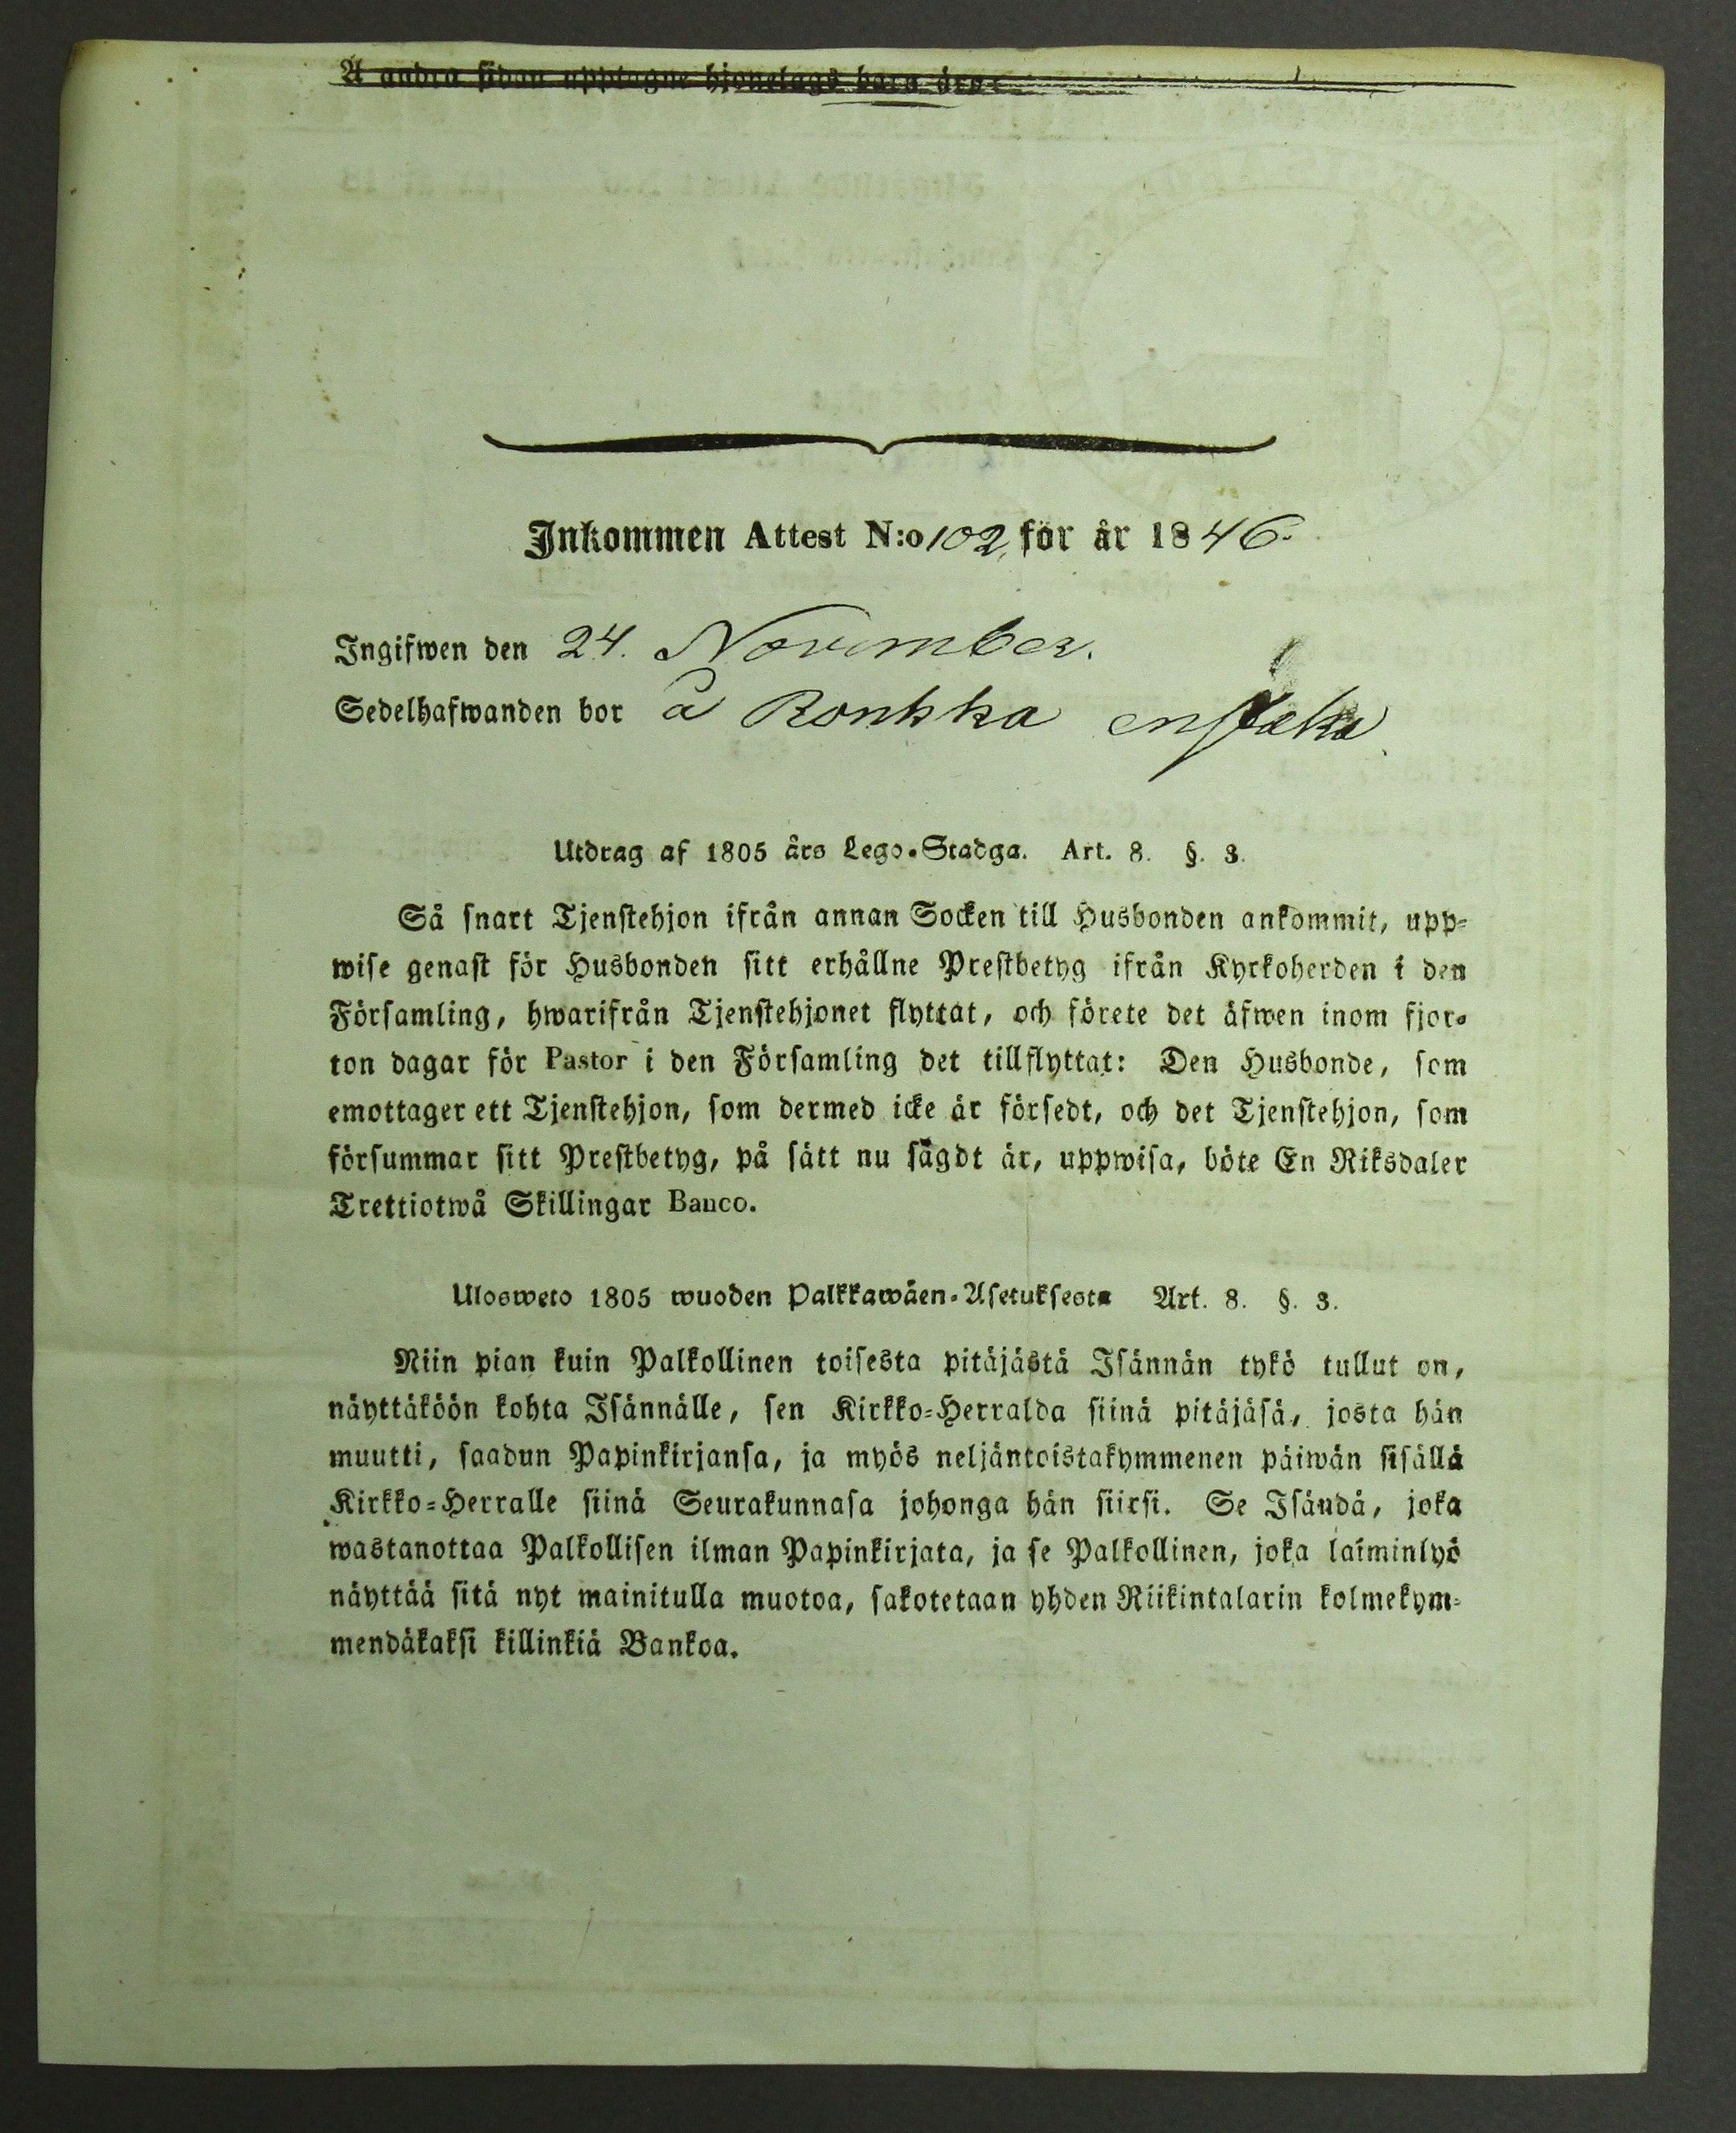 A andra sidan upptagne hjonelags barn äro:
Inkommen Attest N:o 102, för år 1846.
Ingifwen den 24. November.
Sedelhafwanden bor å Ronkka enstaka
Utdrag af 1805 års Lego-Stadga. Art. 8. §. 3.
Så snart Tjenstehjon ifrån annan Socken till Husbonden ankommit, upp-
wise genast för Husbonden sitt erhållne Prestbetyg ifrån Kyrkoherden i den
Församling, hwarifrån Tjenstehjonet flyttat, och förete det äfwen inom fjor-
ton dagar för Pastor i den Församling det tillflyttat: Den Husbonde, som
emottager ett Tjenstehjon, som dermed icke är försedt, och det Tjenstehjon, som
försummar sitt Prestbetyg, på sätt nu sagdt är, uppwisa, böte En Riksdaler
Trettiotwå Skillingar Banco.
Ulosweto 1805 wuoden Palkkawäen-Asetuksesta Art. 8. §. 3.
Niin pian kuin Palkollinen toisesta pitäjästä Isännän tykö tullut on,
näyttäköön kohta Isännälle, sen Kirkko-Herralda siinä pitäjäsä, josta hän
muutti, saadun Papinkirjansa, ja myös neljäntoistakymmenen päiwän sisällä
Kirkko-Herralle siinä Seurakunnasa johonga hän siirsi. Se Isändä, joka
wastanottaa Palkollisen ilman Papinkirjata, ja se Palkollinen, joka laiminlyö
näyttää sitä nyt mainitulla muotoa, sakotetaan yhden Riikintalarin kolmekym-
mendäkaksi killinkiä Bankoa.